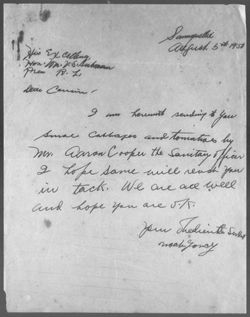 August 5th 193
His Ex Cellency
Hon. Wm. V. S. Tubman
Pres R. L.
Dear Cousin:
I am herewith sending to you
some Cabbages and tomatoes by
Mr. Aaron Cooper the Sanitary officer
I hope same will reach you
in tack. We are all well
and hope you are o.k.
Your Obedient